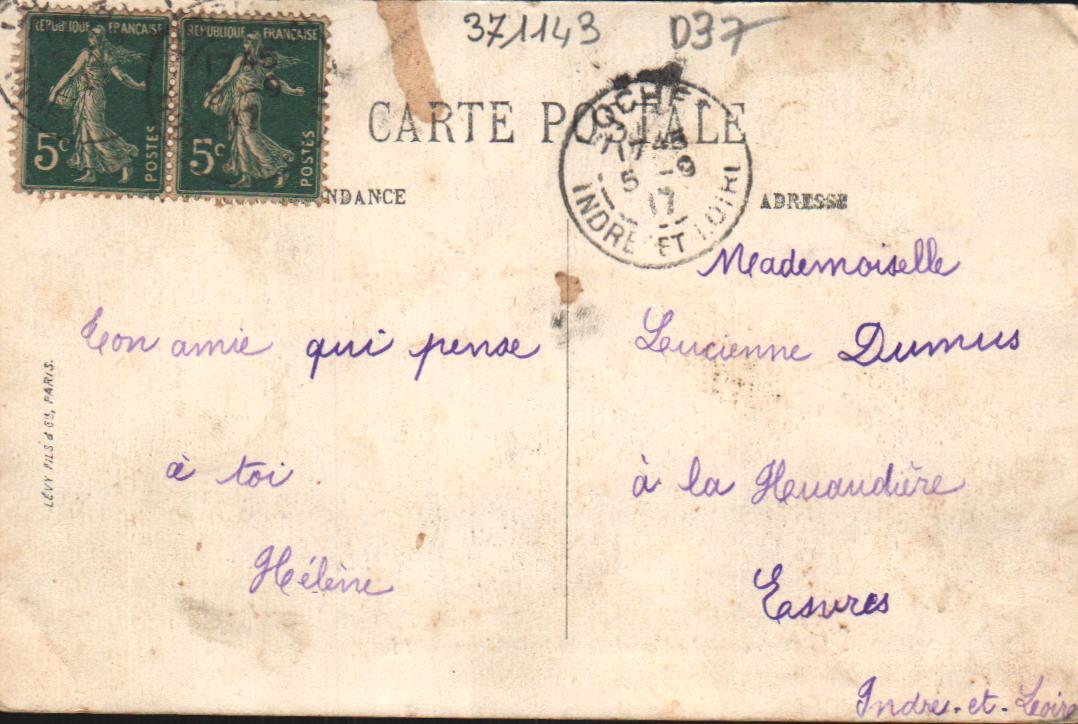 371143 D37
RÉPUBLIQUE FRANÇAISE
5c POSTES
RÉPUBLIQUE FRANÇAISE
5c POSTES
CARTE POSTALE
NDANCE
LOCHES
17 45
5 - 9
17
INDRE ET LOIRE
ADRESSE
Ton amie qui pense
à toi
Hélène
Mademoiselle
Lucienne Dumus
à la
Esvres
Indre-et-Loire
LÉVY FILS & Cie, PARIS.